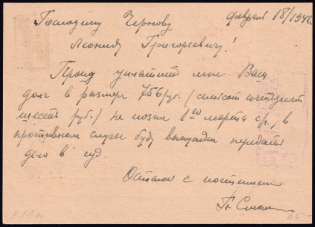 Господину Чернову
февраль 18/1942
Леониду Григорьевичу!
Прошу уплатить мне Ваш
долг в размере 756 руб. (семьсот пятьдесят
шесть руб.) не позже 1го марта с/г, в
противном случае буду вынужден передать
дело в суд.
Остаюсь с почтением